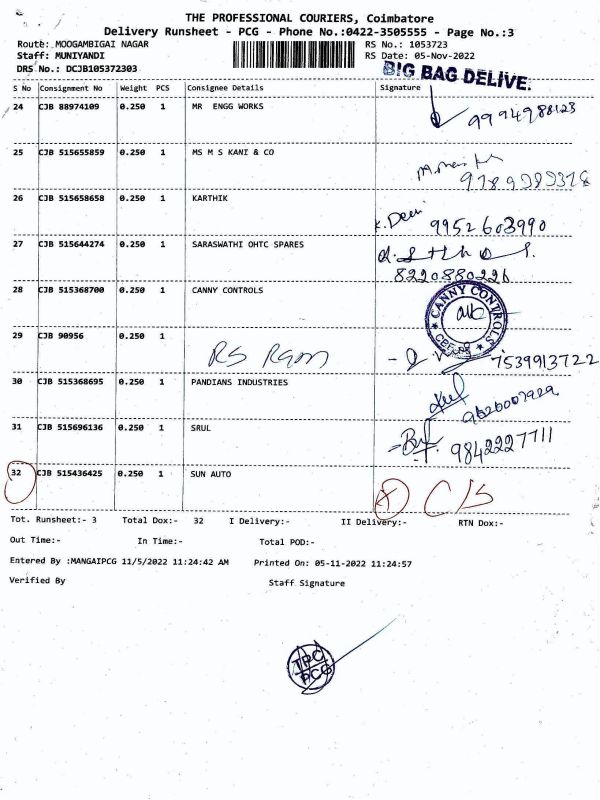 THE PROFESSIONAL COURIERS, Coimbatore
Delivery Runsheet - PCG - Phone No.:0422-3505555 - Page No.:3
Route: MOOGAMBIGAI NAGAR RS No.: 1053723
Staff: MUNIYANDI RS Date: 05-Nov-2022
DRS No.: DCJB105372303
BIG BAG DELIVE.
S No Consignment No Weight PCS Consignee Details Signature
24 CJB 88974109 0.250 1 MR ENGG WORKS
9994988123
25 CJB 515655859 0.250 1 MS M S KANI & CO
26 CJB 515658658 0.250 1 KARTHIK
K. Devi 9952603990
27 CJB 515644274 0.250 1 SARASWATHI OHTC SPARES
8220880226
28 CJB 515368700 0.250 1 CANNY CONTROLS
CANNY CONTROLS
29 CJB 90956 0.250 1
RS Ram
7539913722
30 CJB 515368695 0.250 1 PANDIANS INDUSTRIES
9626007929
31 CJB 515696136 0.250 1 SRUL
9842227711
32 CJB 515436425 0.250 1 SUN AUTO
X C/S
Tot. Runsheet:- 3 Total Dox:- 32 I Delivery:- II Delivery:- RTN Dox:-
Out Time:- In Time:- Total POD:-
Entered By :MANGAIPCG 11/5/2022 11:24:42 AM Printed On: 05-11-2022 11:24:57
Verified By Staff Signature
TPC
PCG